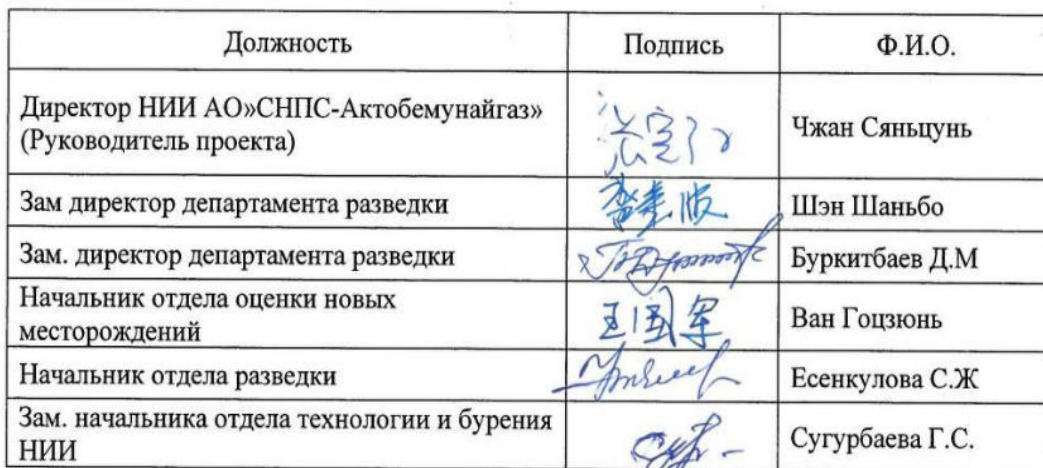 Должность Подпись Ф.И.О.
Директор НИИ АО»СНПС-Актобемунайгаз»
(Руководитель проекта)
Чжан Сяньцунь
Зам директор департамента разведки
Шэн Шаньбо
Зам. директор департамента разведки
Буркитбаев Д.М
Начальник отдела оценки новых
месторождений
王国军
Ван Гоцзюнь
Начальник отдела разведки
Есенкулова С.Ж
Зам. начальника отдела технологии и бурения
НИИ
Сугурбаева Г.С.